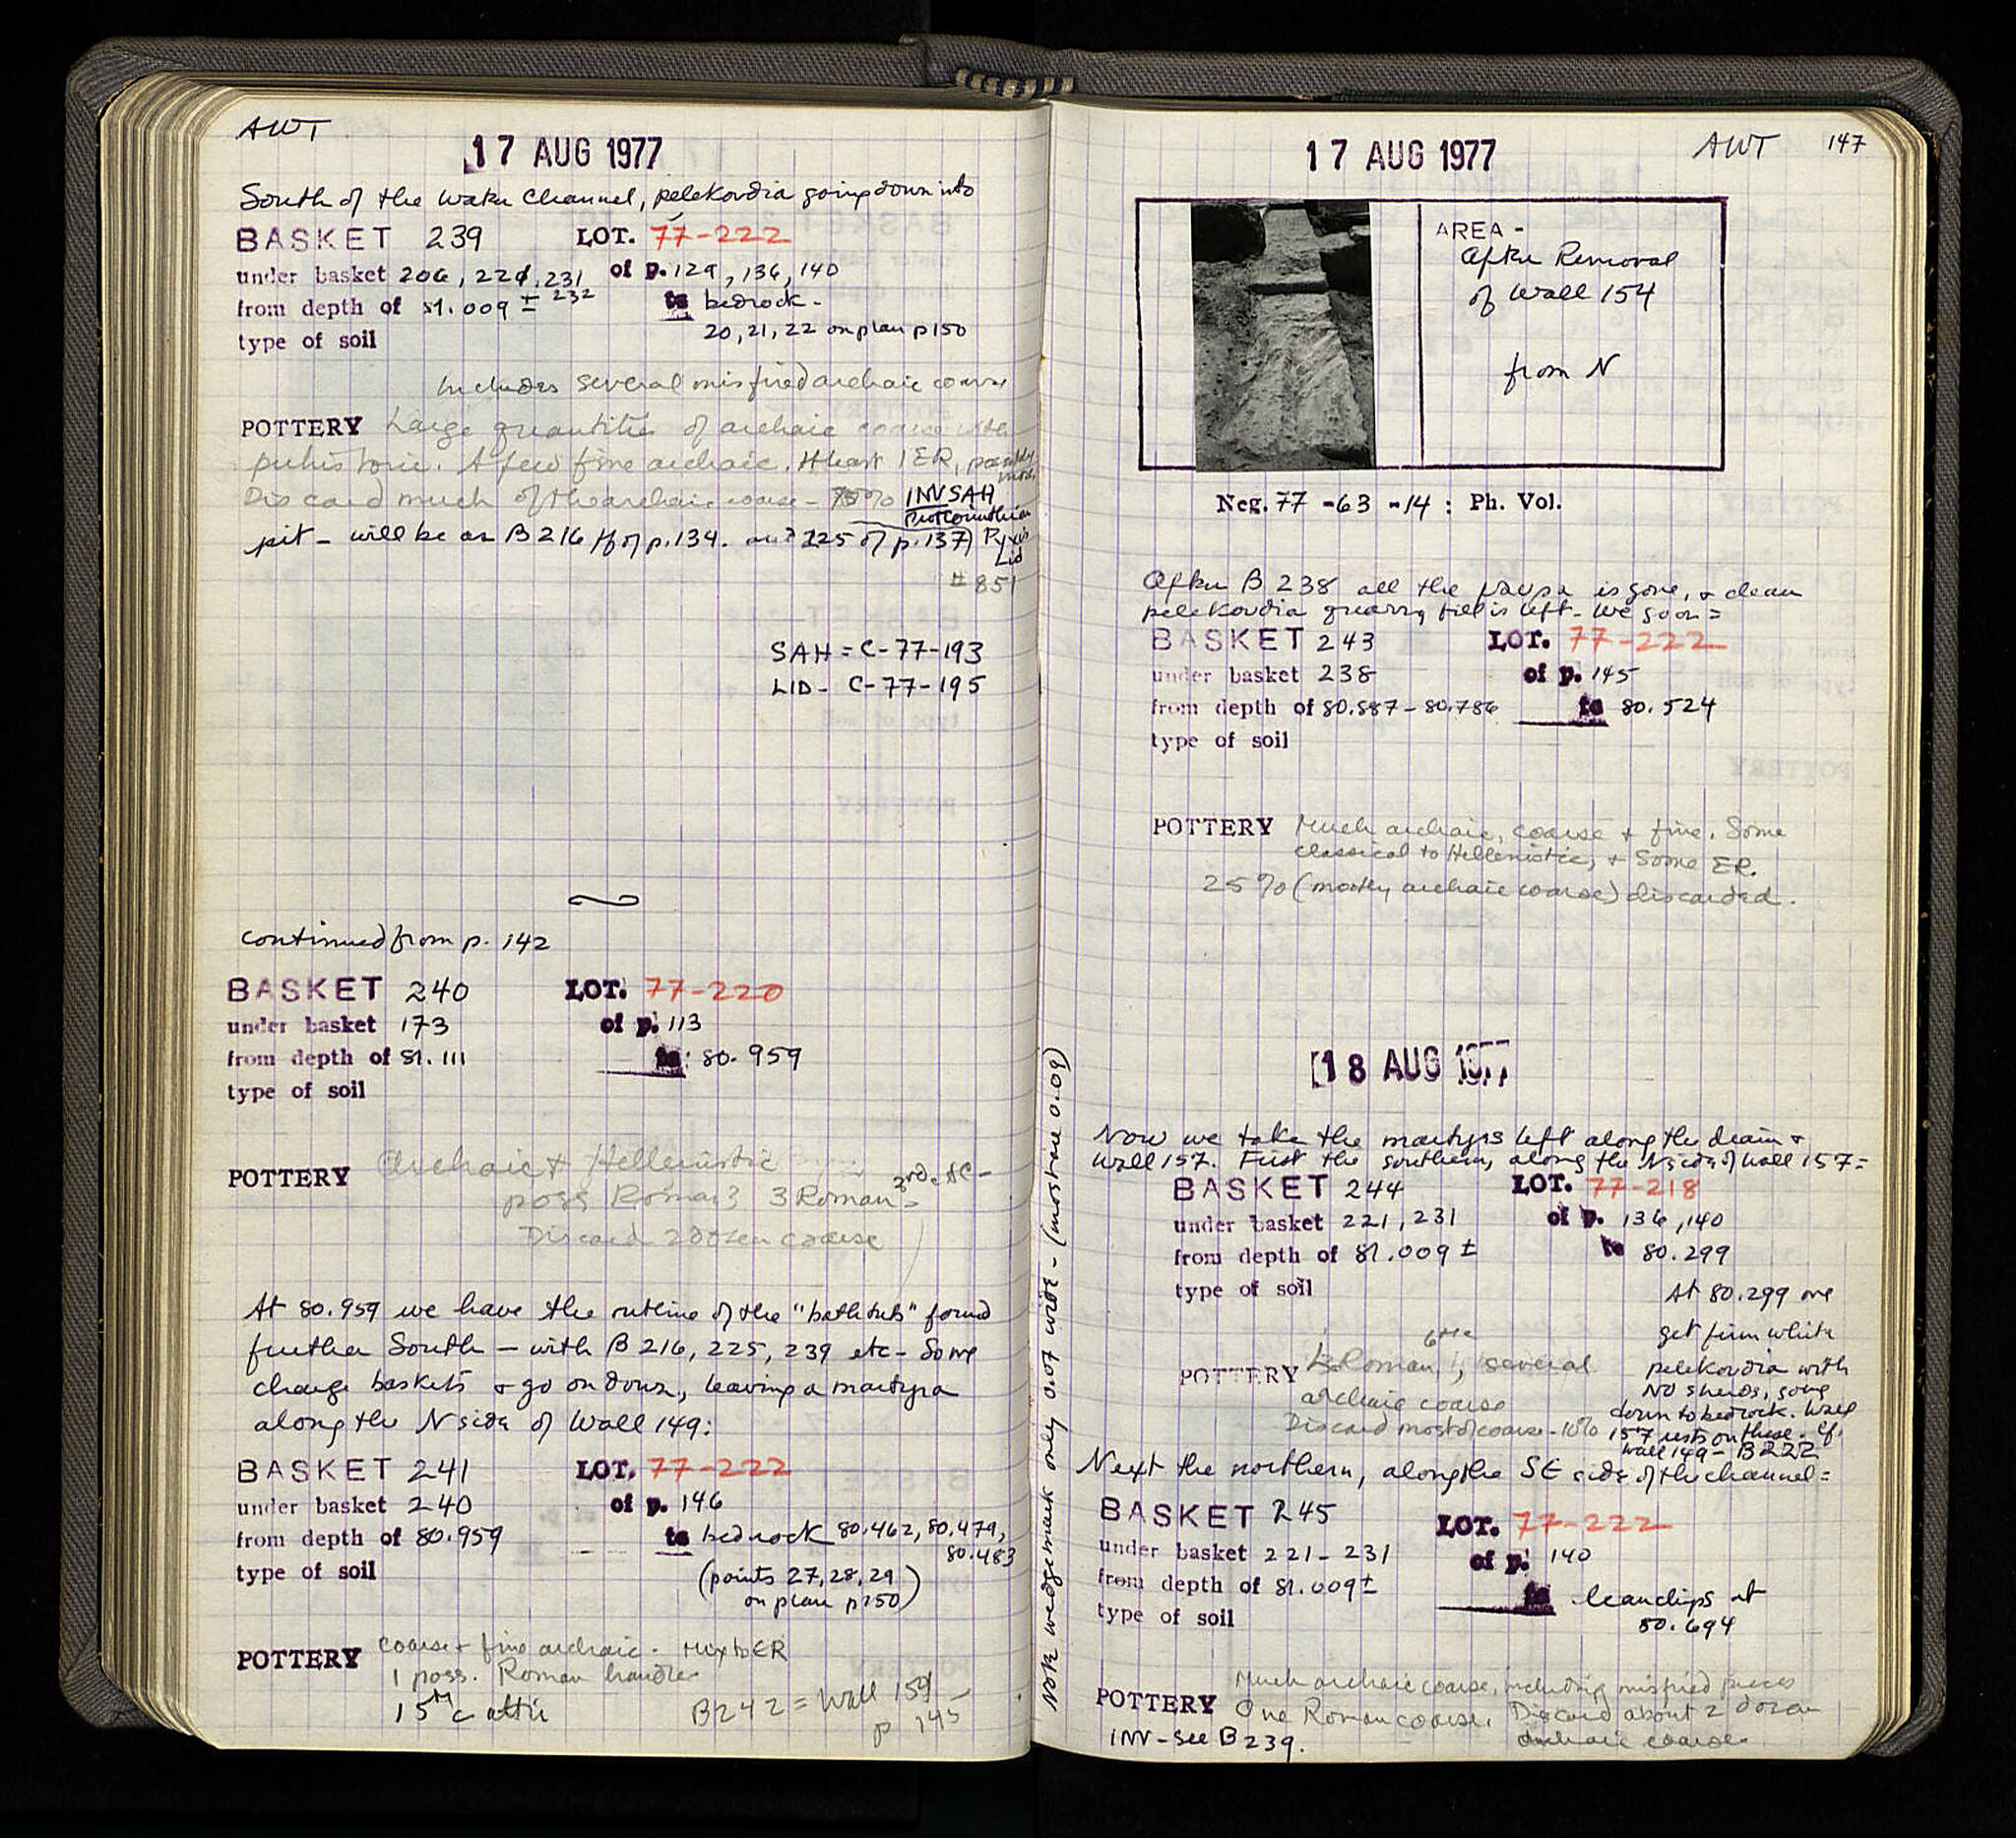 AWT
17 AUG 1977
South of the water channel, pelekoudia going down into
BASKET 239 LOT. 77-222
under basket 206, 221, 231 of p. 129, 136, 140
± 232
from depth of 81.009 to bedrock -
20, 21, 22 on plan p 150
type of soil
Includes several misfired archaic coarse
POTTERY Large quantities of archaic coarse with
prehistoric. A few fine archaic. At least 1 ER, possibly more.
Discard much of the archaic coarse - 75% INV SAH
Protocorinthian
pit - will be as B 216 ff of p. 134. and 225 of p. 137) Pyxis
Lid
# 851
SAH = C-77-193
LID - C-77-195
continued from p. 142
BASKET 240 LOT. 77-220
under basket 173 of p. 113
from depth of 81.111 to 80.959
type of soil
POTTERY Archaic + Hellenistic
poss Roman? 3 Roman - 3rd c. AC -
Discard 2 dozen coarse
At 80.959 we have the outline of the "bathtub" found
further South - with B 216, 225, 239 etc - So we
change baskets & go on down, leaving a martyra
along the N side of Wall 149:
BASKET 241 LOT. 77-222
under basket 240 of p. 146
from depth of 80.959 to bedrock 80.462, 80.479,
80.483
type of soil (points 27, 28, 29
on plan p 150)
POTTERY coarse + fine archaic - Mix to ER
1 poss. Roman handle
1 5th c attic B242 = Wall 154 -
p 145
17 AUG 1977 AWT 147
AREA -
After Removal
of Wall 154
from N
Neg. 77 -63 -14 : Ph. Vol.
After B 238 all the χαυρα is gone, & clean
pelekoudia quarry fill is left. We soon =
BASKET 243 LOT. 77-222
under basket 238 of p. 145
from depth of 80.887 - 80.786 to 80.524
type of soil
POTTERY Much archaic, coarse + fine. Some
classical to Hellenistic, + some ER.
25% (mostly archaic coarse) discarded.
18 AUG 1977
Now we take the martyrs left along the drain &
Wall 157. First the southern, along the N side of Wall 157 =
BASKET 244 LOT. 77-218
under basket 221, 231 of p. 136, 140
from depth of 81.009 ± to 80.299
type of soil At 80.299 we
get firm white
POTTERY Roman, several pelekoudia with
archaic coarse NO sherds, going
Discard most of coarse - 10% down to bedrock. Wall
157 rests on these. Cf.
Wall 149 - B222
Next the northern, along the SE side of the channel =
BASKET 245 LOT. 77-222
under basket 221 - 231 of p. 140
from depth of 81.009± to clean chips at
80.694
type of soil
Much archaic coarse, including misfired pieces
POTTERY One Roman coarse. Discard about 2 dozen
archaic coarse.
INV - see B 239.
Note wedgemark only 0.07 wide - (most are 0.09)